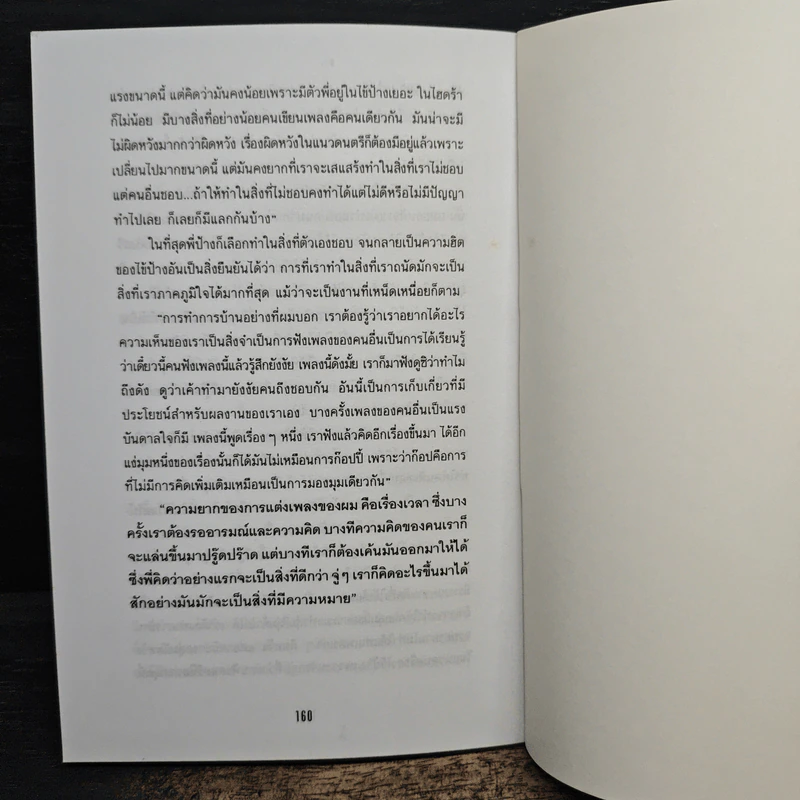 แรงขนาดนี้ แต่คิดว่ามันคงน้อยเพราะมีตัวพี่อยู่ในไข้ป้างเยอะ ในไฮดร้า
ก็ไม่น้อย มีบางสิ่งที่อย่างน้อยคนเขียนเพลงคือคนเดียวกัน มันน่าจะมี
ไม่ผิดหวังมากกว่าผิดหวัง เรื่องผิดหวังในแนวดนตรีก็ต้องมีอยู่แล้วเพราะ
เปลี่ยนไปมากขนาดนี้ แต่มันคงยากที่เราจะเสแสร้งทำในสิ่งที่เราไม่ชอบ
แต่คนอื่นชอบ...ถ้าให้ทำในสิ่งที่ไม่ชอบคงทำได้แต่ไม่ดีหรือไม่มีปัญญา
ทำไปเลย ก็เลยก็มีแลกกันบ้าง"
ในที่สุดพี่ป้างก็เลือกทำในสิ่งที่ตัวเองชอบ จนกลายเป็นความฮิต
ของไข้ป้างอันเป็นสิ่งยืนยันได้ว่า การที่เราทำในสิ่งที่เราถนัดมักจะเป็น
สิ่งที่เราภาคภูมิใจได้มากที่สุด แม้ว่าจะเป็นงานที่เหน็ดเหนื่อยก็ตาม
"การทำการบ้านอย่างที่ผมบอก เราต้องรู้ว่าเราอยากได้อะไร
ความเห็นของเราเป็นสิ่งจำเป็นการฟังเพลงของคนอื่นเป็นการได้เรียนรู้
ว่าเดี๋ยวนี้คนฟังเพลงนี้แล้วรู้สึกยังงัย เพลงนี้ดังมั้ย เราก็มาฟังดูซิว่าทำไม
ถึงดัง ดูว่าเค้าทำมายังงัยคนถึงชอบกัน อันนี้เป็นการเก็บเกี่ยวที่มี
ประโยชน์สำหรับผลงานของเราเอง บางครั้งเพลงของคนอื่นเป็นแรง
บันดาลใจก็มี เพลงนี้พูดเรื่อง ๆ หนึ่ง เราฟังแล้วคิดอีกเรื่องขึ้นมา ได้อีก
แง่มุมหนึ่งของเรื่องนั้นก็ได้มันไม่เหมือนการก๊อปปี้ เพราะว่าก๊อปคือการ
ที่ไม่มีการคิดเพิ่มเติมเหมือนเป็นการมองมุมเดียวกัน"
"ความยากของการแต่งเพลงของผม คือเรื่องเวลา ซึ่งบาง
ครั้งเราต้องรออารมณ์และความคิด บางทีความคิดของคนเราก็
จะแล่นขึ้นมาปรู๊ดปร๊าด แต่บางทีเราก็ต้องเค้นมันออกมาให้ได้
ซึ่งพี่คิดว่าอย่างแรกจะเป็นสิ่งที่ดีกว่า จู่ ๆ เราก็คิดอะไรขึ้นมาได้
สักอย่างมันมักจะเป็นสิ่งที่มีความหมาย"
160